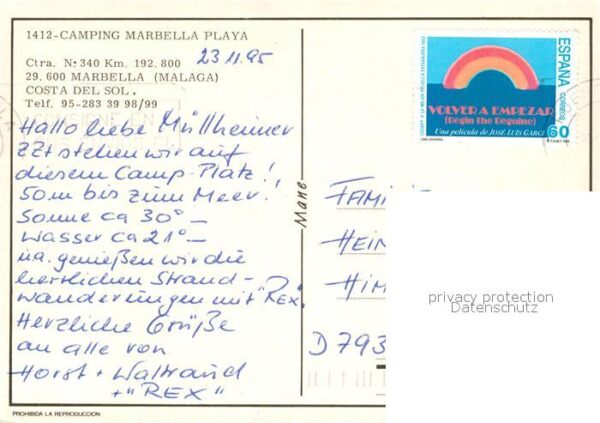 1412-CAMPING MARBELLA PLAYA
23.11.95
Ctra. N: 340 Km. 192. 800
29. 600 MARBELLA (MALAGA)
COSTA DEL SOL.
Telf. 95-283 39 98/99
Hallo liebe Müllheimer
ZZt stehen wir auf
diesem Camp. Platz!
50m bis zum Meer!
Sonne ca 30° –
Wasser ca 21° –
u.a. genießen wir die
herrlichen Strand-
wanderungen mit "REX".
Herzliche Grüße
an alle von
Horst + Waltraud
+ "REX"
PROHIBIDA LA REPRODUCCION
Mane
ESPAÑA
CORREOS
60
VOLVER A EMPEZAR
(Begin the Beguine)
Una película de JOSÉ LUIS GARCI
CINE ESPAÑOL
FAMI
HEIN
HIM
D 793
privacy protection
Datenschutz